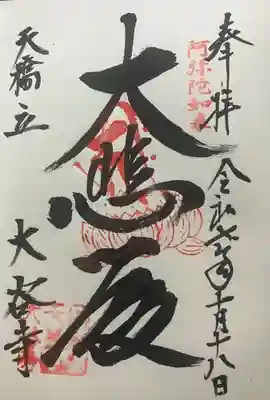 奉拝
令和七年十月十八日
阿弥陀如来
大
天橋立
大谷寺